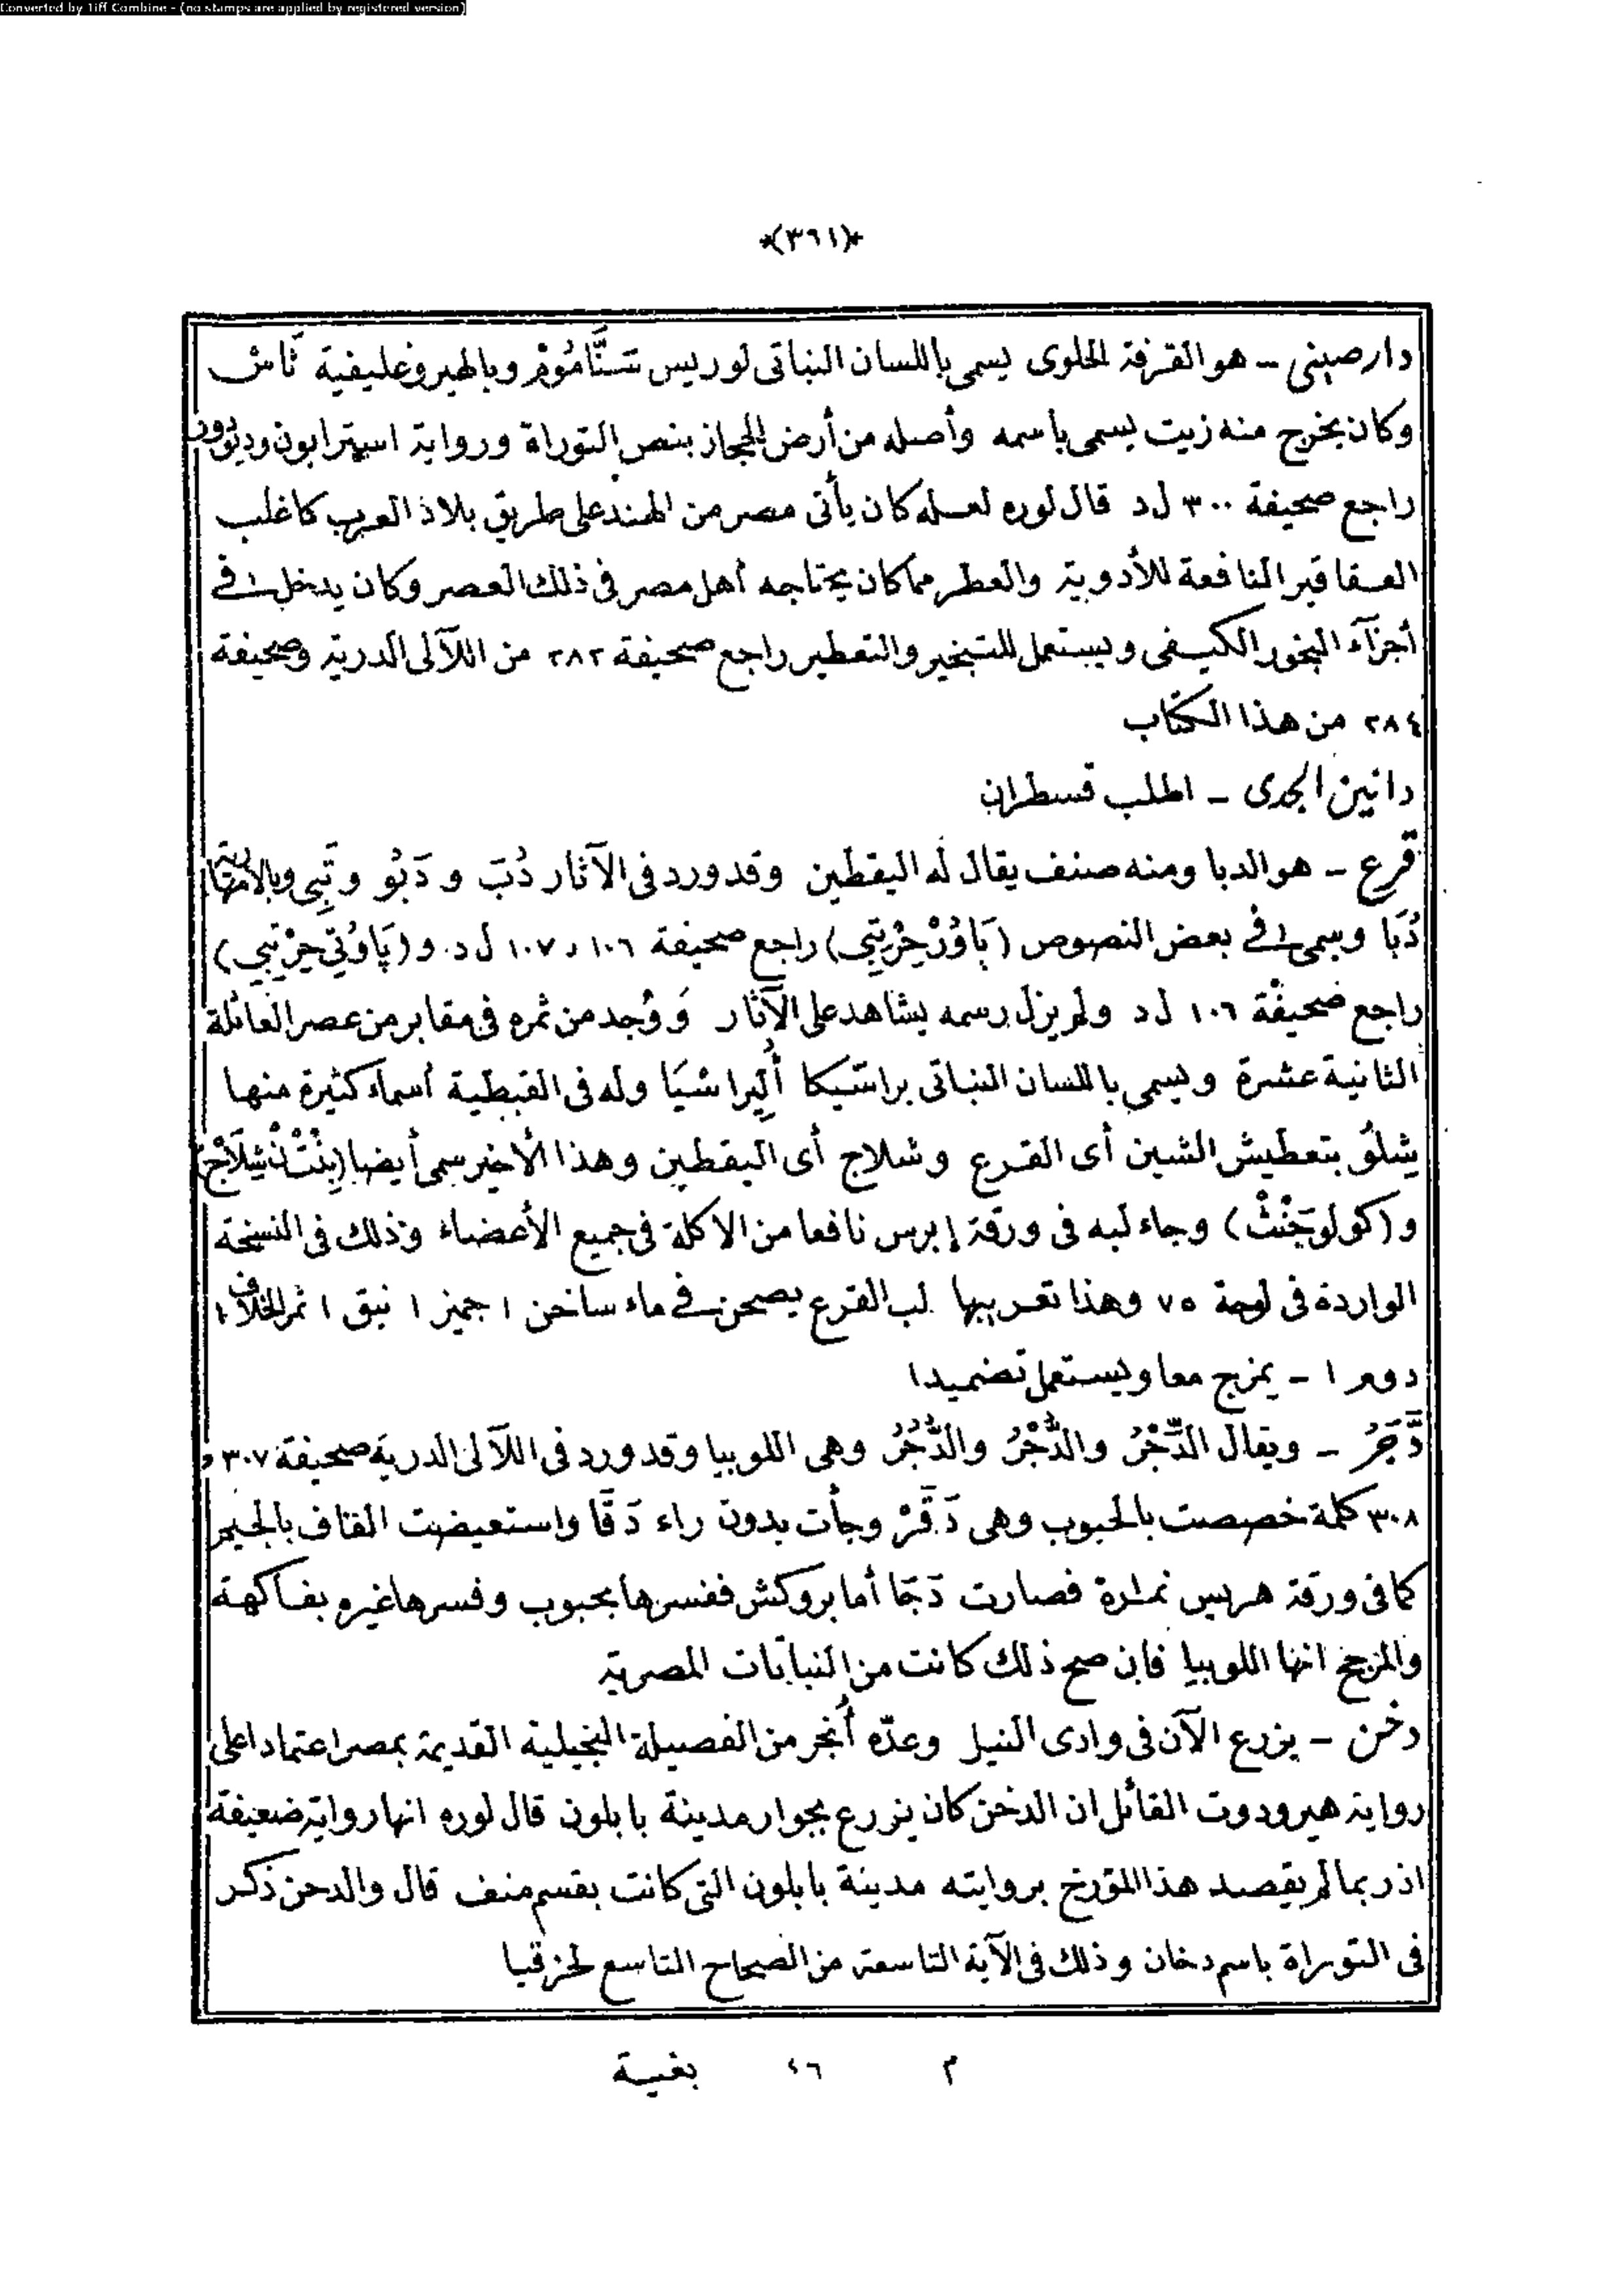 Converted by Tiff Combine - (no stamps are applied by registered version)
*(٣٦١)*
دارصيني ـ هو القرفة الحلوى يسمى باللسان النباتى لوريس سنَّامُومْ وبالهيروغليفية تَاس
وكان يخرج منه زيت يسمى باسمه وأصله من أرض الحجاز بنص التوراة ورواية استرابون وديودون
راجع صحيفة ٣٠٠ ل د قال لوره لعله كان يأتى مصر من الهند على طريق بلاد العرب كاغلب
العقاقير النافعة للأدوية والعطر مما كان يحتاجه أهل مصر فى ذلك العصر وكان يدخل فى
أجزآء البخور الكيفى ويستعمل للتبخير والتعطير راجع صحيفة ٢٨٢ من اللآلى الدرية وصحيفة
٢٨٤ من هذا الكتاب
دانين الجدى ـ اطلب قسطران
قرع ـ هو الدبا ومنه صنف يقال له اليقطين وقد ورد فى الآثار دُبَ و دَبُو و تَبِى وبالامهارية
دُبَا ويسمى فى بعض النصوص (پَاوُرْخِرْتِبِي) راجع صحيفة ١٠٦ و ١٠٧ ل د. و(پَاوُتِي خِرْتِبِي)
راجع صحيفة ١٠٦ ل د ولم يزل رسمه يشاهد على الآثار وَوُجد من ثمره فى مقابر من عصر العائلة
الثانية عشرة ويسمى باللسان النباتى براسّيكا أُلِيراشيَا وله فى القبطية أسماء كثيرة منها
شِلوُ بتعطيش الشين أى القرع وشلاج أى اليقطين وهذا الأخير سمى أيضا (بِنْتْ نْ شِلَاجْ)
و(كولوجَنْثْ) وجاء لبه فى ورقة إبرس نافعا من الاكلة فى جميع الأعضاء وذلك فى النسخة
الواردة فى لوحة ٧٥ وهذا تعريبها لب القرع يصحن فى ماء ساخن ١ جميز ١ نبق ١ ثمر الخلاف ١
دوم ١ ـ يمزج معا ويستعمل تضميدا
دَّجَرُ ـ ويقال الدِّجْرُ والدُّجْرُ والدُّجُرُ وهى اللوبيا وقد ورد فى اللآلى الدرية صحيفة ٣٠٧ و
٣٠٨ كلمة خصصت بالحبوب وهى دَقَرْ وجأت بدون راء دَقَا واستعيضت القاف بالجيم
كما فى ورقة هريس نمرة فصارت دَجَا أما بروكش ففسرها بحبوب وفسرها غيره بفاكهة
والمرجح انها اللوبيا فان صح ذلك كانت من النباتات المصرية
دخن ـ يزرع الآن فى وادى النيل وعدّه أُنجر من الفصيلة النجيلية القديمة بمصر اعتمادا على
رواية هيرودوت القائل ان الدخن كان يزرع بجوار مدينة بابلون قال لوره انها رواية ضعيفة
اذ ربما لم يقصد هذا المؤرخ بروايته مدينة بابلون التى كانت بقسم منف قال والدحن ذكر
فى التوراة باسم دخان وذلك فى الآية التاسعة من الصحاح التاسع لحزقيا
م ٤٦ بغية